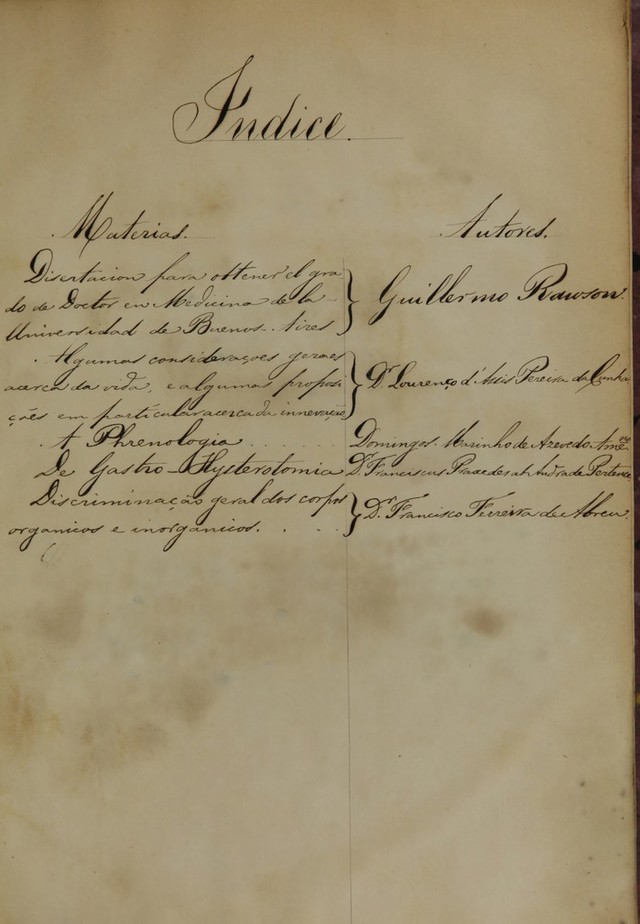 Indice.
Materias. Autores.
Disertacion para obtener el gra
do de Doctor en Medicina de la
Universidad de Buenos-Aires } Guillermo Rawson.
Algumas considerações geraes
acerca da vida, e algumas proposi } Dr. Lourenço d'Assis Pereira da Cunha
ções em particular acerca da innervação
A Phrenologia . . . . . . Domingos Marinho de Azevedo Ame
De Gastro-Hysterotomia Dr. Franciscus Praxedes
Discriminação geral dos corpos
organicos e inorganicos. . . . } Dr. Francisco Ferreira de Abreu.